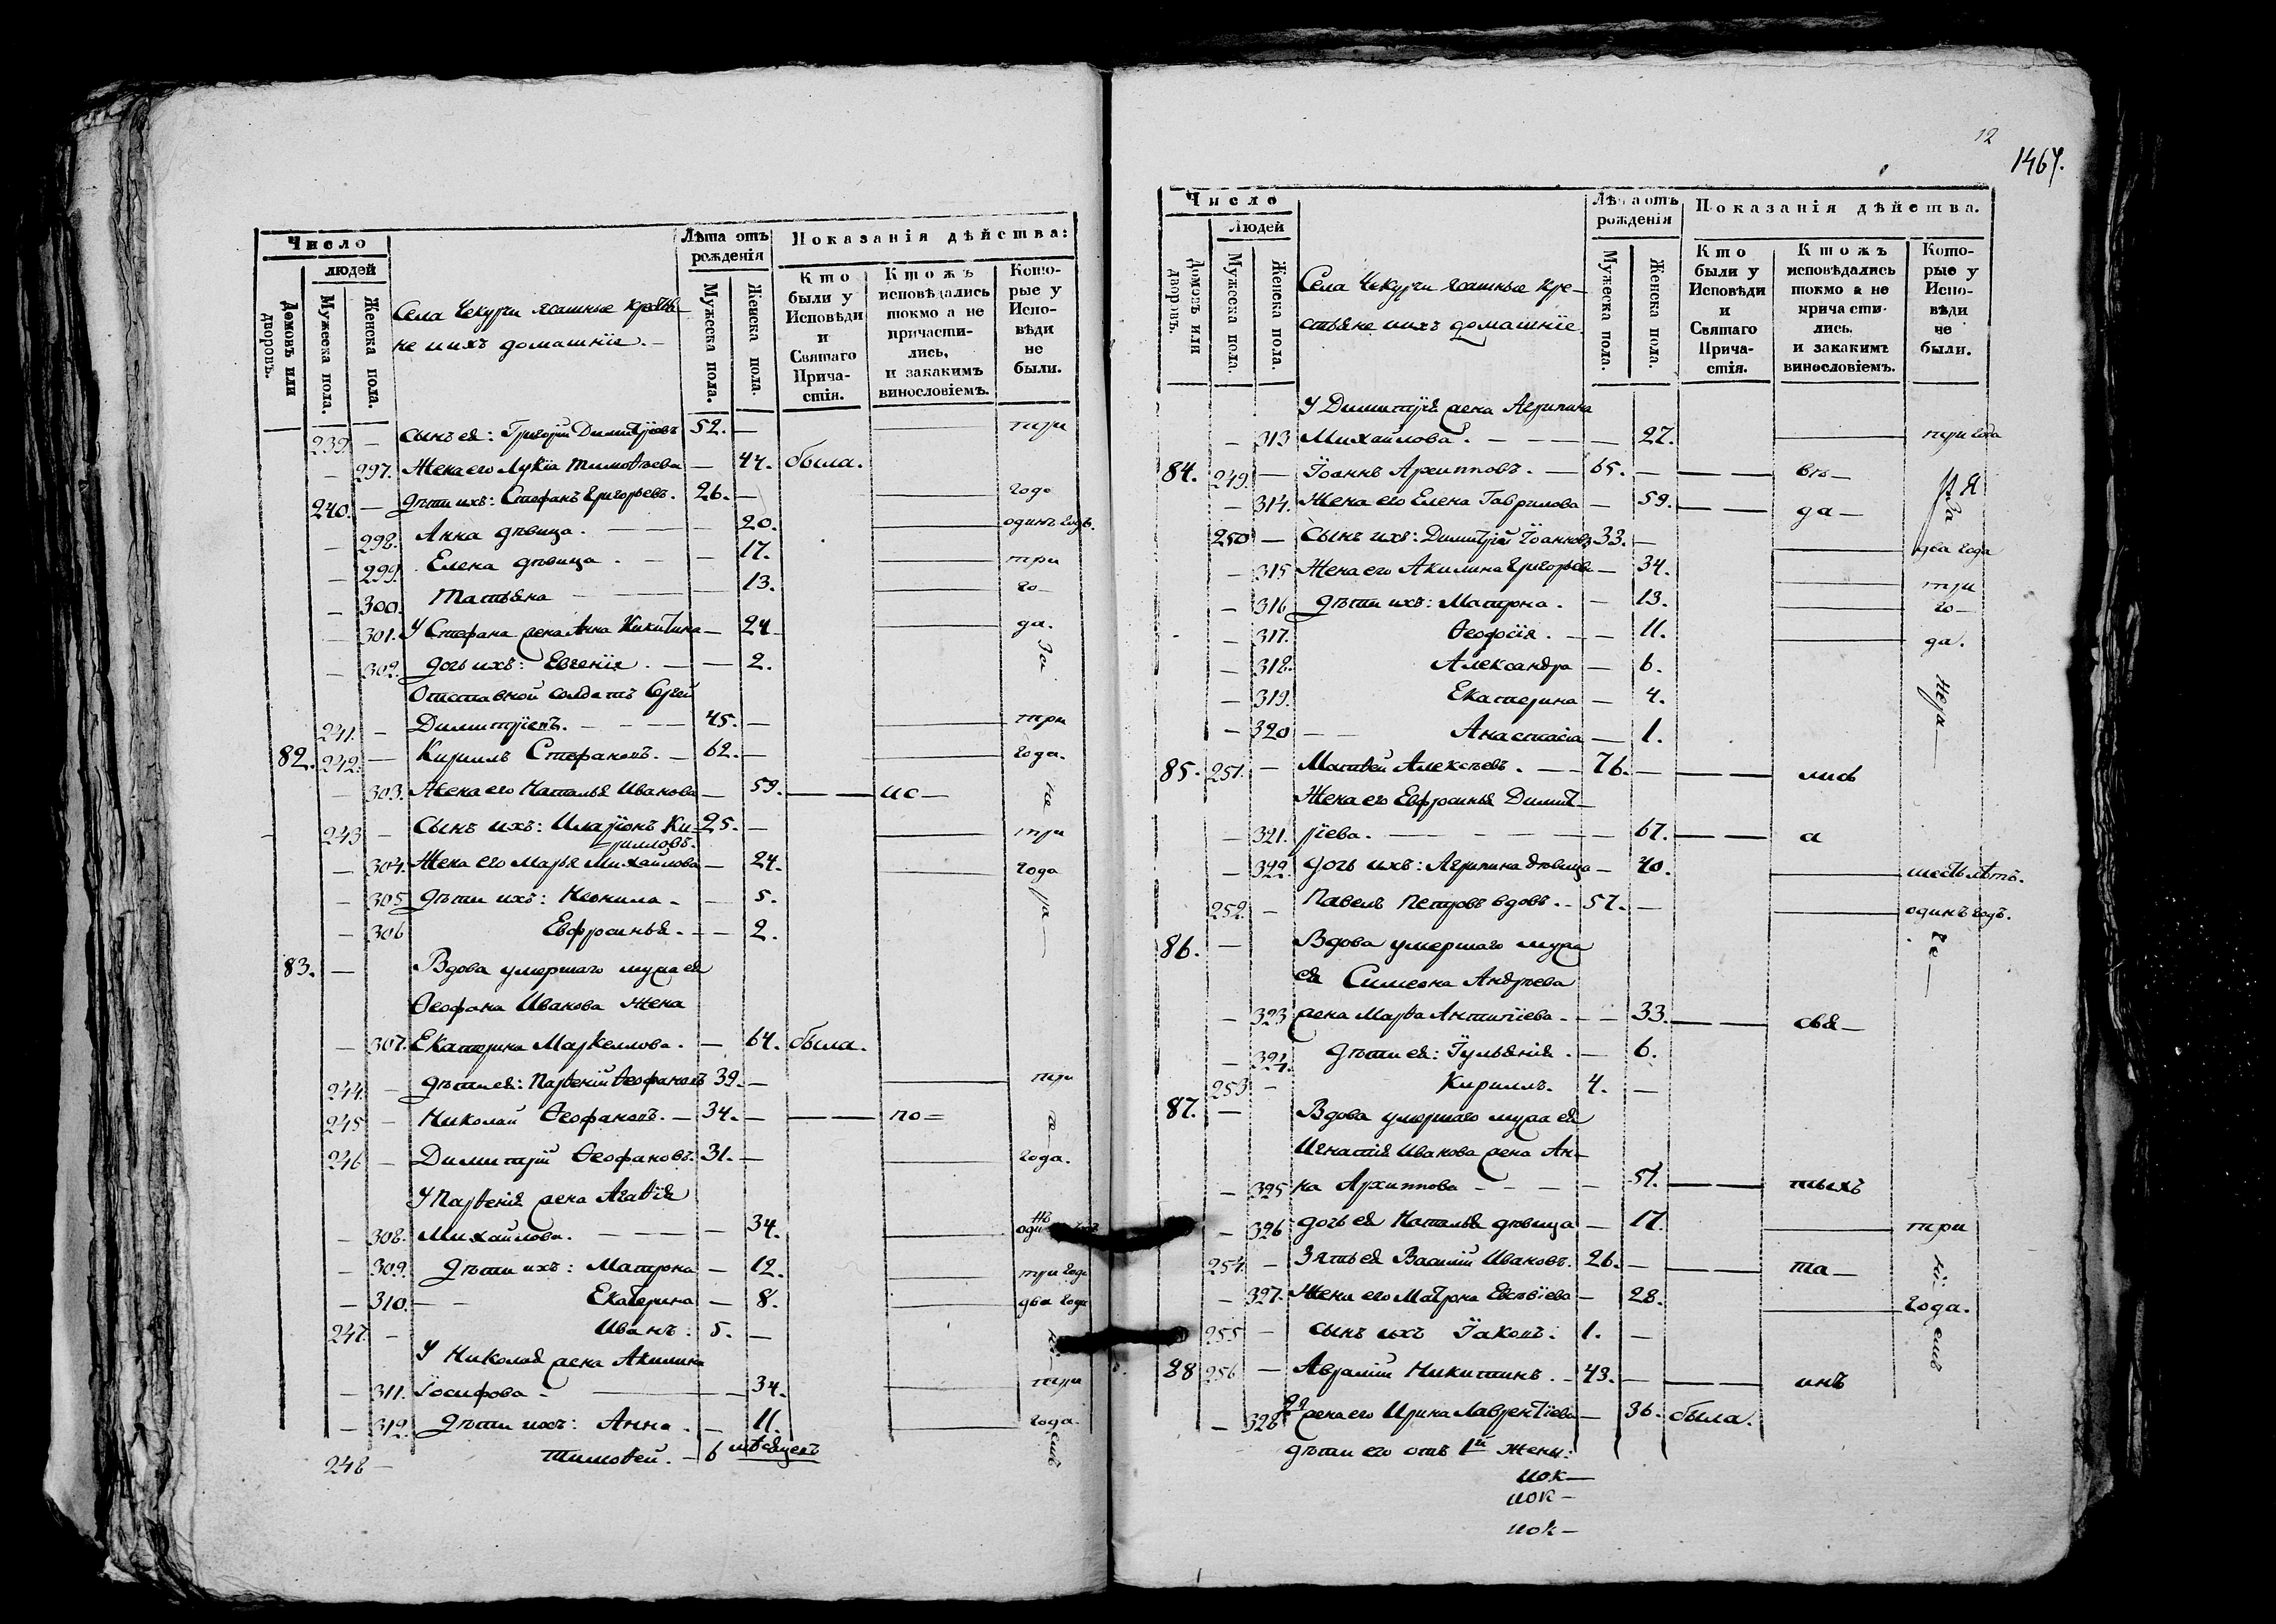 Число
людей
Домовъ или дворовъ.
Мужеска пола.
Женска пола.
Села Чекурчи ясашные крестья-
не и ихъ домашнїе. —
Лѣта отъ рожденія
Мужеска пола.
Женска пола.
Показанія дѣйства:
Кто были у Исповѣди и Святаго Прича-стія.
Ктожъ исповѣдались токмо а не причасти-лись, и закакимъ винословіемъ.
Кото-рые у Испо-вѣди не были.
239. — сынъ ея: Григорїй Димитрїевъ 52. — три
— 297. Жена его Лукїа Тимоѳеева — 44. была.
240. — дѣти ихъ: Стефанъ Григорьевъ. 26. — года
— 298. Анна дѣвица. — 20. одинъ годъ.
— 299. Елена дѣвица. — 17. три
— 300. Татьяна — 13. го—
— 301. У Стефана жена Анна Никитина — 24 да.
— 302. дочь ихъ: Евгенїя. — 2. За
Отставной солдатъ Сергей
241. — Димитрїевъ. — 45. — три
82. 242. — Кириллъ Стефановъ. — 62. — года.
— 303. Жена его Наталья Иванова — 59. — ис— не
243 — Сынъ ихъ: Иларїонъ Ки- 25. — три
рилловъ.
— 304. Жена его Марья Михайлова — 24. года
— 305 дѣти ихъ: Неонила — 5. ра—
— 306 Евфросинья. — 2.
83. — Вдова умершаго мужа ея
Ѳеофана Иванова жена
— 307. Екатерина Маркеллова. — 64. была.
244. — дѣти ея: Парѳенїй Ѳеофановъ 39. — три
245 — Николай Ѳеофановъ. — 34. — по= 
246 — Димитрїй Ѳеофановъ. 31. — года.
У Парѳенїя жена Агаѳїя
— 308. Михайлова. — 34. одинъ
— 309. дѣти ихъ: Матрона — 12. три года
— 310. — Екатерина — 8. два года
247. — Иванъ: 5. —
У Николая жена Акилина
— 311. Їосифова — 34. три
— 312. дѣти ихъ: Анна. — 11. года.
248 — Тимоѳей. — 6 мѣсяцевъ
12
1467.
Число
Людей
Домовъ или дворовъ.
Мужеска пола.
Женска пола.
Села Чекурчи ясашные кре—
стьяне и ихъ домашнїе.
Лѣта отъ рожденія
Мужеска пола.
Женска пола.
Показанія дѣйства.
Кто были у Исповѣди и Святаго Прича-стія.
Ктожъ исповѣдались токмо а не прича сти-лись. и закакимъ винословіемъ.
Кото-рые у Испо-вѣди не были.
У Димитрїя жена Агрипина
— 313 Михайлова. — 27. три года
84. 249. — Їоаннъ Архипповъ. — 65. — вѣ—
— 314. Жена его Елена Гаврилова — 59. — да—
250 — Сынъ ихъ: Димитрїй Їоанновъ 33. — два года
— 315 Жена его Акилина Григорьева — 34. три
— 316 дѣти ихъ: Матрона. — 13. го—
— 317. Ѳеодосїя. — 11. да.
— 318. Александра — 6.
— 319. Екатерина — 4. нера—
— 320 — Анастасїа — 1.
85. 251. — Матвей Алексѣевъ. — 76. — лись
Жена его Евфросинья Димит—
— 321. рїева. — 67. — а
— 322. дочь ихъ: Агрипина дѣвица — 40. шесть лѣтъ.
252. — Павелъ Петровъ вдовъ. — 57. — одинъ годъ.
86. — Вдова умершаго мужа
ея Симеона Андрѣева
— 323 жена Марѳа Антипїева. — 33. — свя—
— 324. дѣти ея: Їульянїя. — 6.
253 — Кириллъ. 4. —
87. — Вдова умершаго мужа ея
Игнатїя Иванова жена Ан—
— 325 на Архиппова — 57. — тыхъ
— 326 дочь ея Наталья дѣвица — 17. три
254. — Зять ея Василїй Ивановъ. 26. — та—
— 327. Жена его Матрона Евсевїева — 28. года.
255 — сынъ ихъ Їаковъ: 1. —
88 256 — Аврамїй Никитинъ. — 43. — инъ
— 328 2я жена его Ирина Лаврентїева — 36. была.
дѣти его отъ 1й жены: